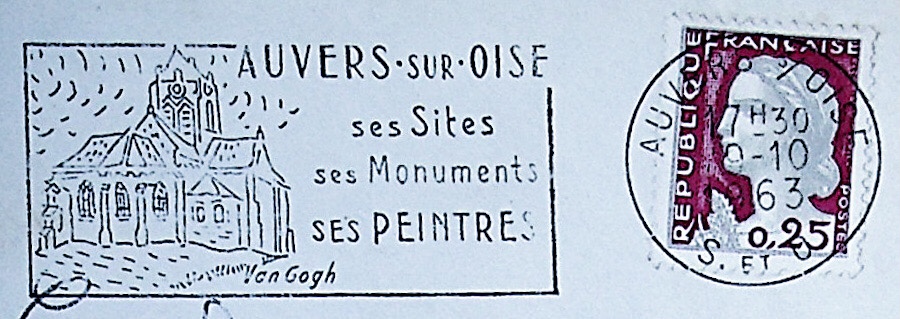 AUVERS·SUR·OISE
ses Sites
ses Monuments
SES PEINTRES
Van Gogh
RÉPUBLIQUE FRANÇAISE
POSTES
0,25
17H30
-10
63
S. ET O